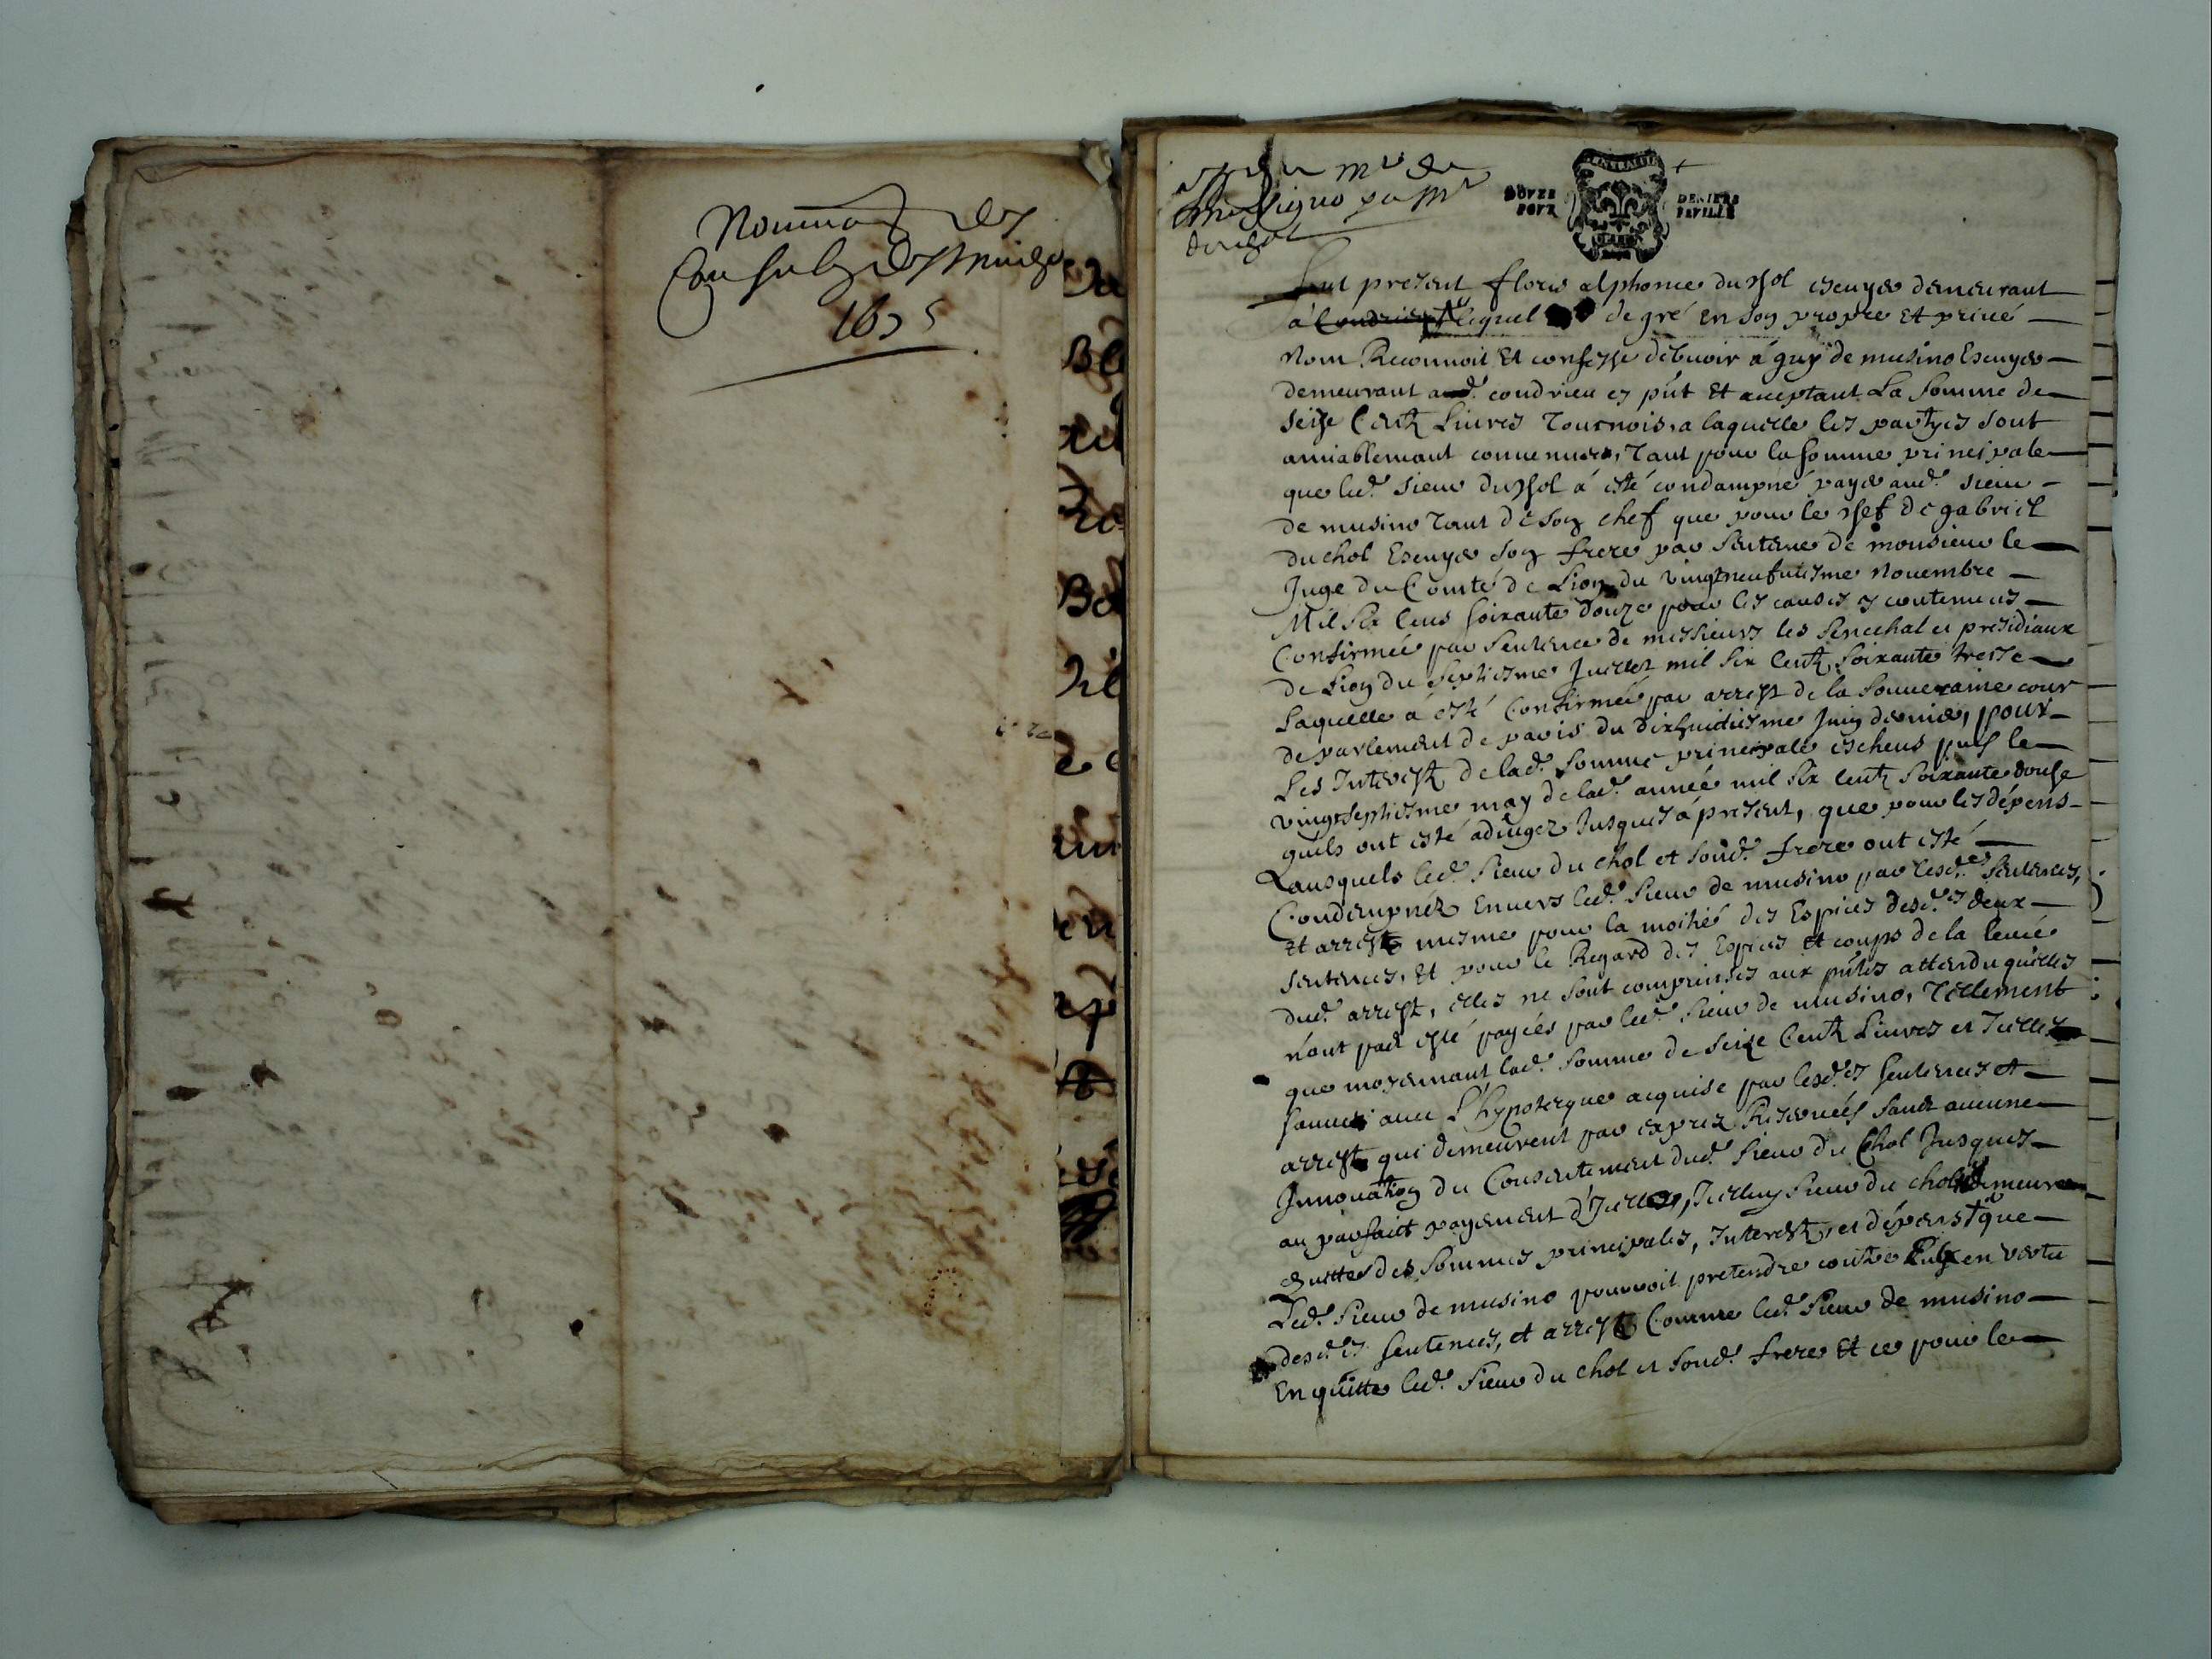 des
1675
DOUZE DENIERS
POUR FEUILLE
Fut present floris alphonce du chol escuyer demeurant
à Condrieu lequel de gré en son propre et privé
nom Reconnoit et confesse debuoir à guy de musino Escuyer
demeurant aud. condrieu cy pnt et acceptant La somme de
seize Centz Liures Tournois, a laquelle les partyes sont
amiablemant conuenues, Tant pour la somme principale
que led. sieur du chol à esté condampné payer aud. sieur
de musino Tant de son chef que pour le chef de gabriel
du chol Escuyer son frere par sentence de monsieur le
Juge du Comté de Lion du vingtneufuiesme Nouembre
Mil Six Cens soixante douze pour les causes y contenues
Confirmée par sentence de messieurs les senechal et presidiaux
de Lion du septiesme Juillet mil six Centz soixante treize
Laquelle à esté Confirmée par arrest de la souueraine cour
de parlement de paris du dixhuictiesme Juin dernier, pour
Les Interestz de lad. somme principale escheus puis le
vingtseptiesme may de lad. année mil six centz soixante douse
quils ont esté adiugez Jusques à present, que pour les dépens
ausquels led. sieur du chol et sond. frere ont esté
Condempnéz Enuers led. sieur de musino par lesd.es sentences,
et arrest mesme pour la moitié des Espices desd.es deux
sentences, et pour le Regard des Espices et coups de la leuée
dud. arrest, elles ne sont comprinses aux pntes attendu quelles
n'ont pas esté payées par led. sieur de musino, Tellement
que moyennant lad. somme de seize Centz Liures et Icelles
sauues auec L'hypoteque acquise par lesd.es sentences et
arrest qui demeurent par exprez Reseruées sans aucune
Innouation du Consentement dud. sieur du Chol Jusques
au parfaict payement d'Icelles, Icelluy sieur du chol demeure
Quitte des sommes principales, Interestz, et dépens que
Led. sieur de musino pouuoit pretendre contre en vertu
desd.es sentences, et arrest Comme led. sieur de musino
En quitte led. sieur du chol et sond. frere Et ce pour le